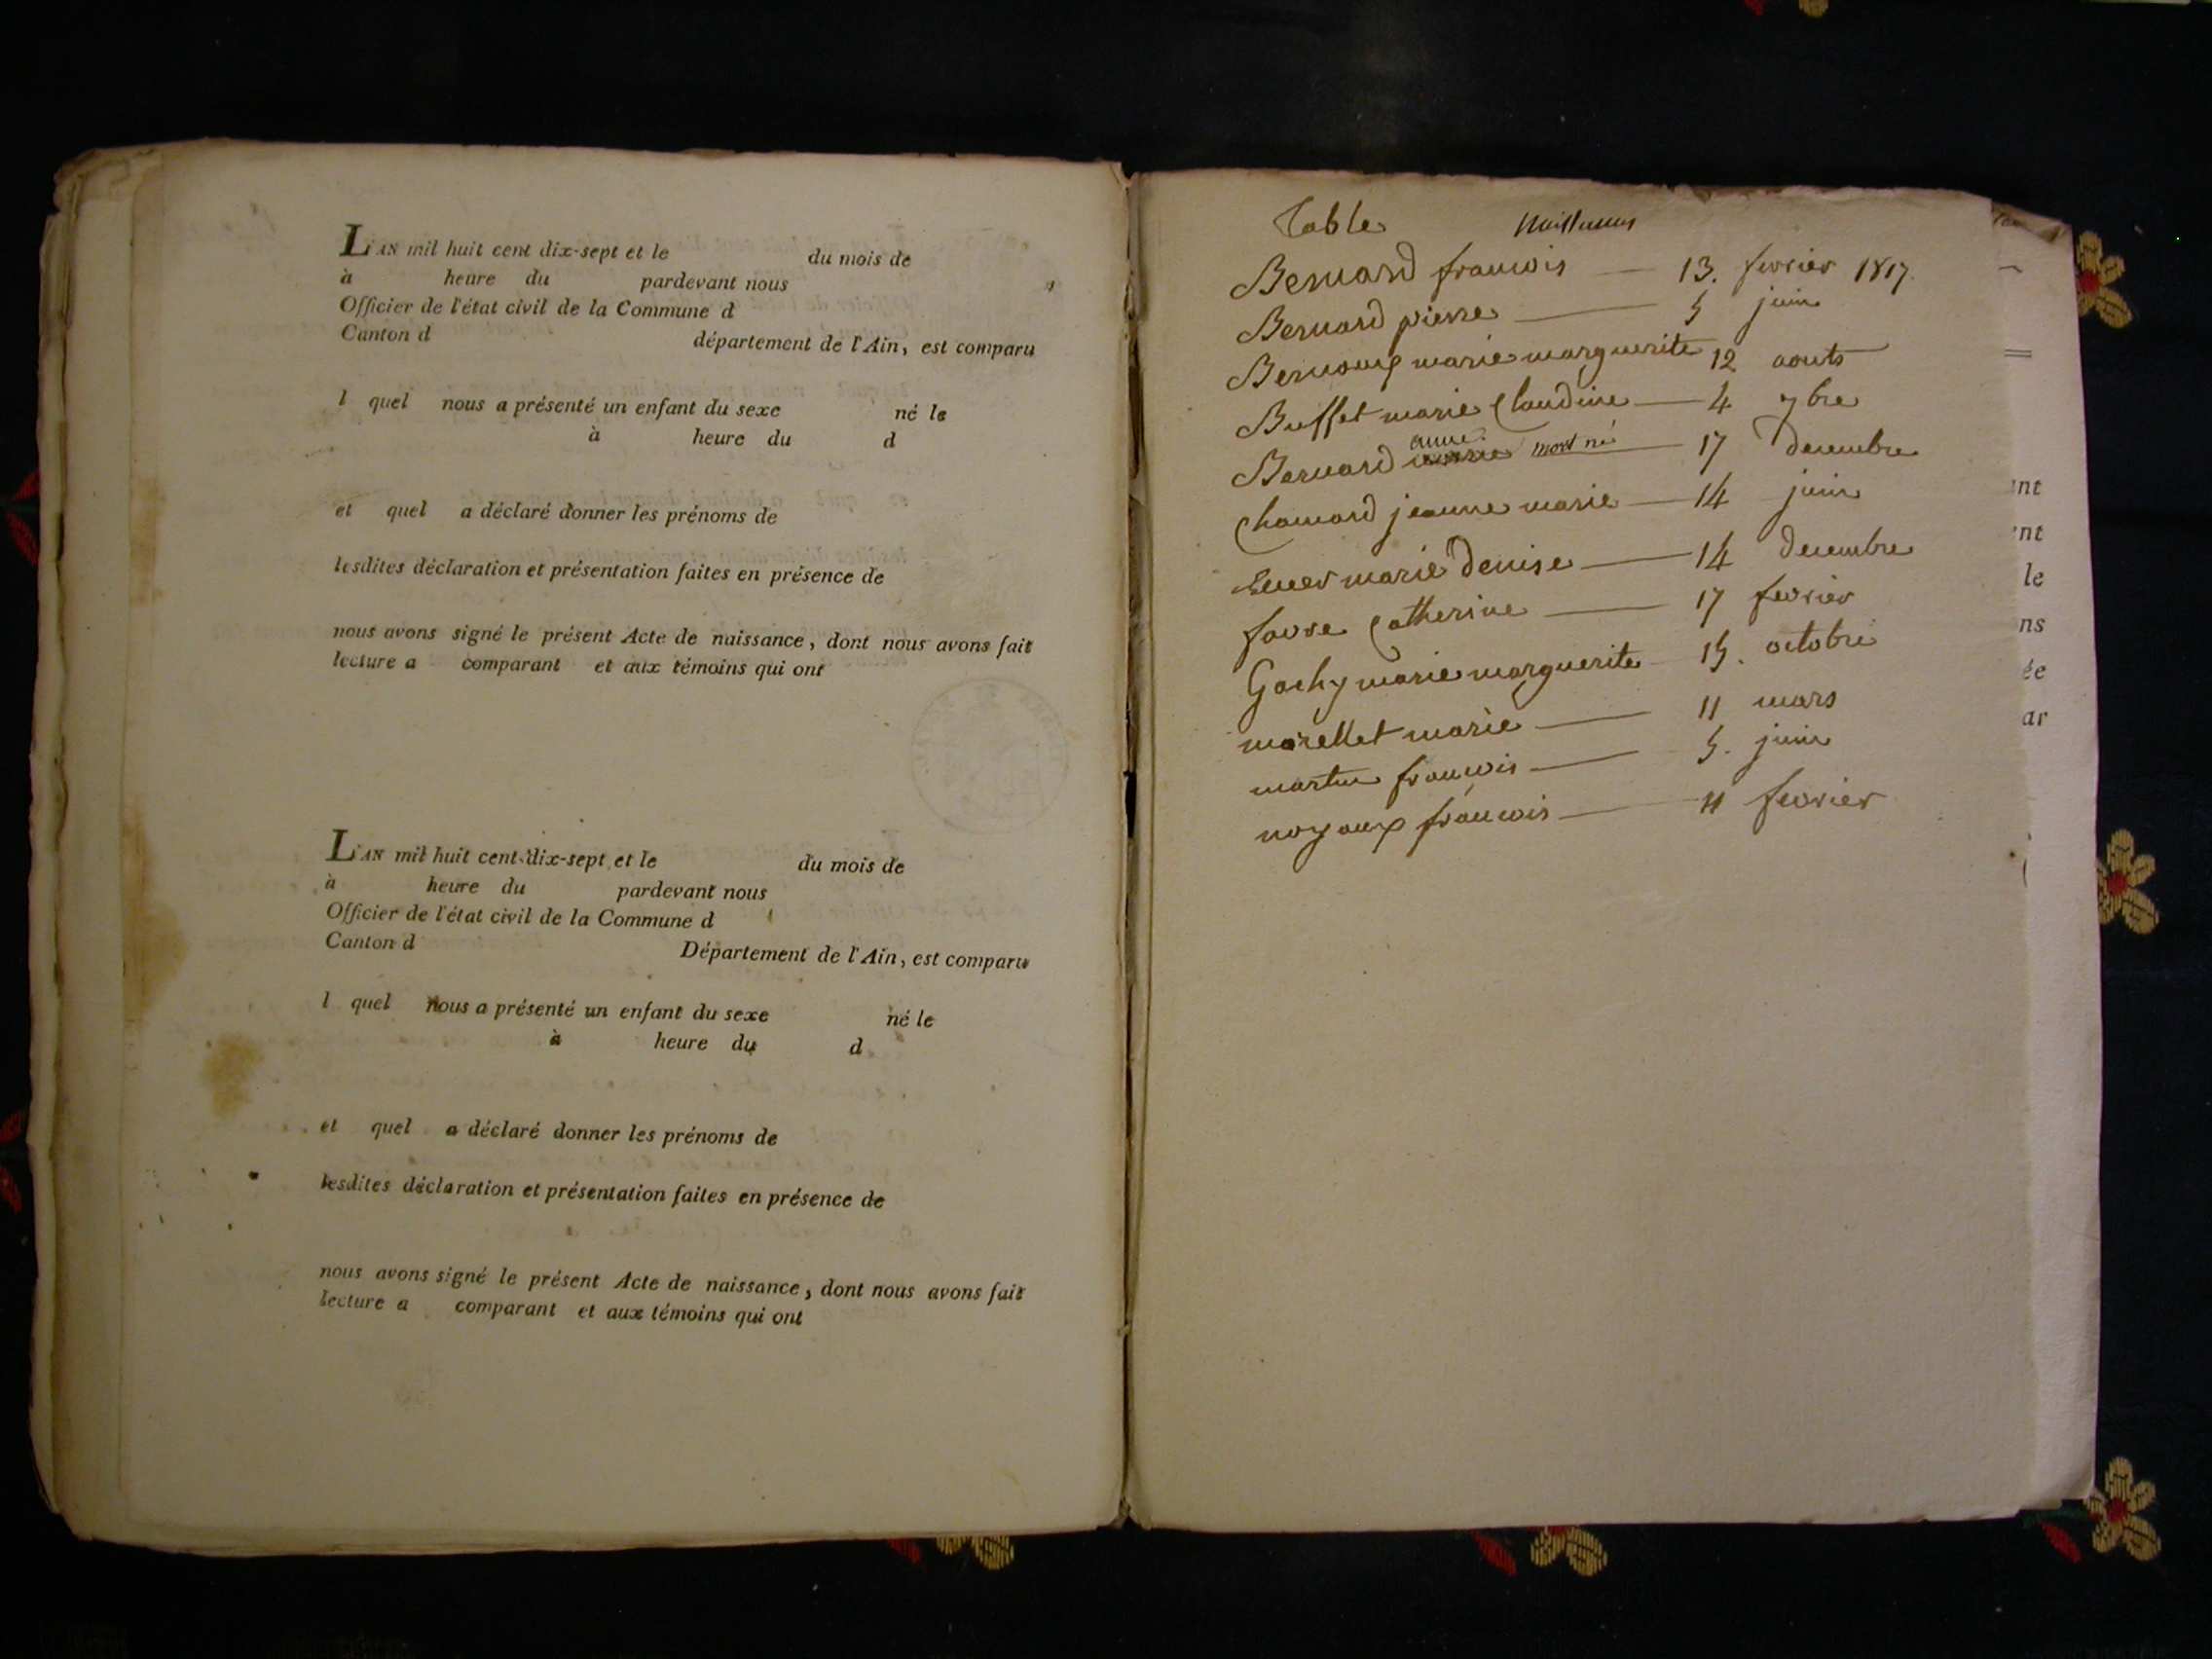 L'AN mil huit cent dix-sept et le du mois de
à heure du pardevant nous
Officier de l'état civil de la Commune d
Canton d département de l'Ain, est comparu
l quel nous a présenté un enfant du sexe né le
à heure du d
et quel a déclaré donner les prénoms de
lesdites déclaration et présentation faites en présence de
nous avons signé le présent Acte de naissance, dont nous avons fait
lecture a comparant et aux témoins qui ont
L'AN mil huit cent dix-sept et le du mois de
à heure du pardevant nous
Officier de l'état civil de la Commune d
Canton d Département de l'Ain, est comparu
l quel nous a présenté un enfant du sexe né le
à heure du d
et quel a déclaré donner les prénoms de
lesdites déclaration et présentation faites en présence de
nous avons signé le présent Acte de naissance, dont nous avons fait
lecture a comparant et aux témoins qui ont
Table Naissances
Bernard francois — 13. fevrier 1817.
Bernard pierre — 5 juin
Bernoux marie marguerite 12 aouts
Buffet marie Claudine — 4 7bre
Bernard anne mort né — 17 decembre
Chanard jeanne marie — 14 juin
marie denise — 14 decembre
favre Catherine — 17 fevrier
Gachy marie marguerite 15. octobre
morellet marie — 11 mars
martin francois — 5. juin
noyaux francois — 11 fevrier
nt
nt
le
ns
ée
ar